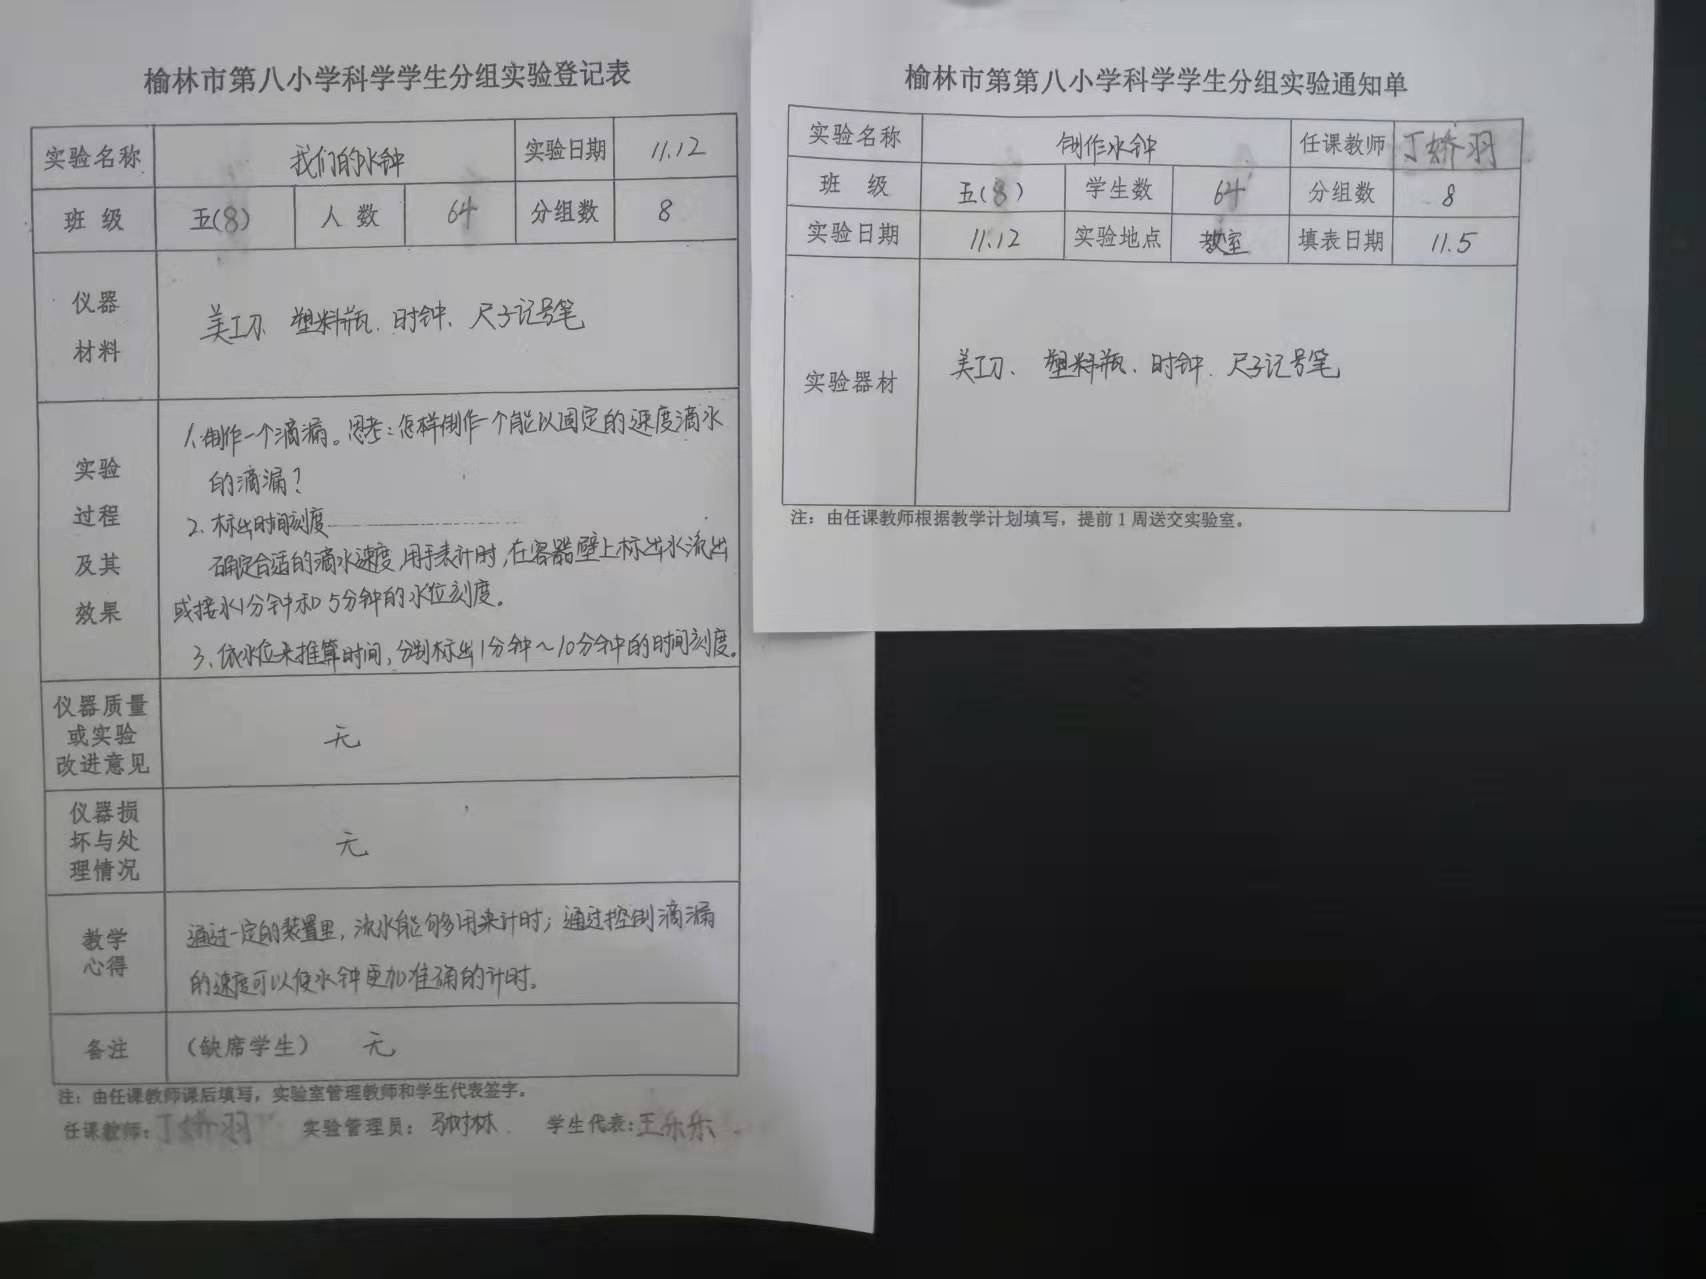 榆林市第八小学科学学生分组实验登记表
实验名称 我们的水钟 实验日期 11.12
班 级 五(8) 人 数 64 分组数 8
仪器
材料
美工刀、塑料瓶、时钟、尺子记号笔
实验
过程
及其
效果
1.制作一个滴漏。思考:怎样制作一个能以固定的速度滴水
的滴漏?
2.标出时间刻度
确定合适的滴水速度,用手表计时,在容器壁上标出水流出
或接水1分钟和5分钟的水位刻度。
3、依水位来推算时间,分别标出1分钟~10分钟的时间刻度。
仪器质量
或实验
改进意见
无
仪器损
坏与处
理情况
无
教学
心得
通过一定的装置里,流水能够用来计时;通过控制滴漏
的速度可以使水钟更加准确的计时。
备注 (缺席学生) 无
注:由任课教师课后填写,实验室管理教师和学生代表签字。
任课教师:丁娇羽 实验管理员:马树林 学生代表:王乐乐
榆林市第第八小学科学学生分组实验通知单
实验名称 制作水钟 任课教师 丁娇羽
班 级 五(8) 学生数 64 分组数 8
实验日期 11.12 实验地点 教室 填表日期 11.5
实验器材 美工刀、塑料瓶、时钟、尺子记号笔
注:由任课教师根据教学计划填写,提前1周送交实验室。